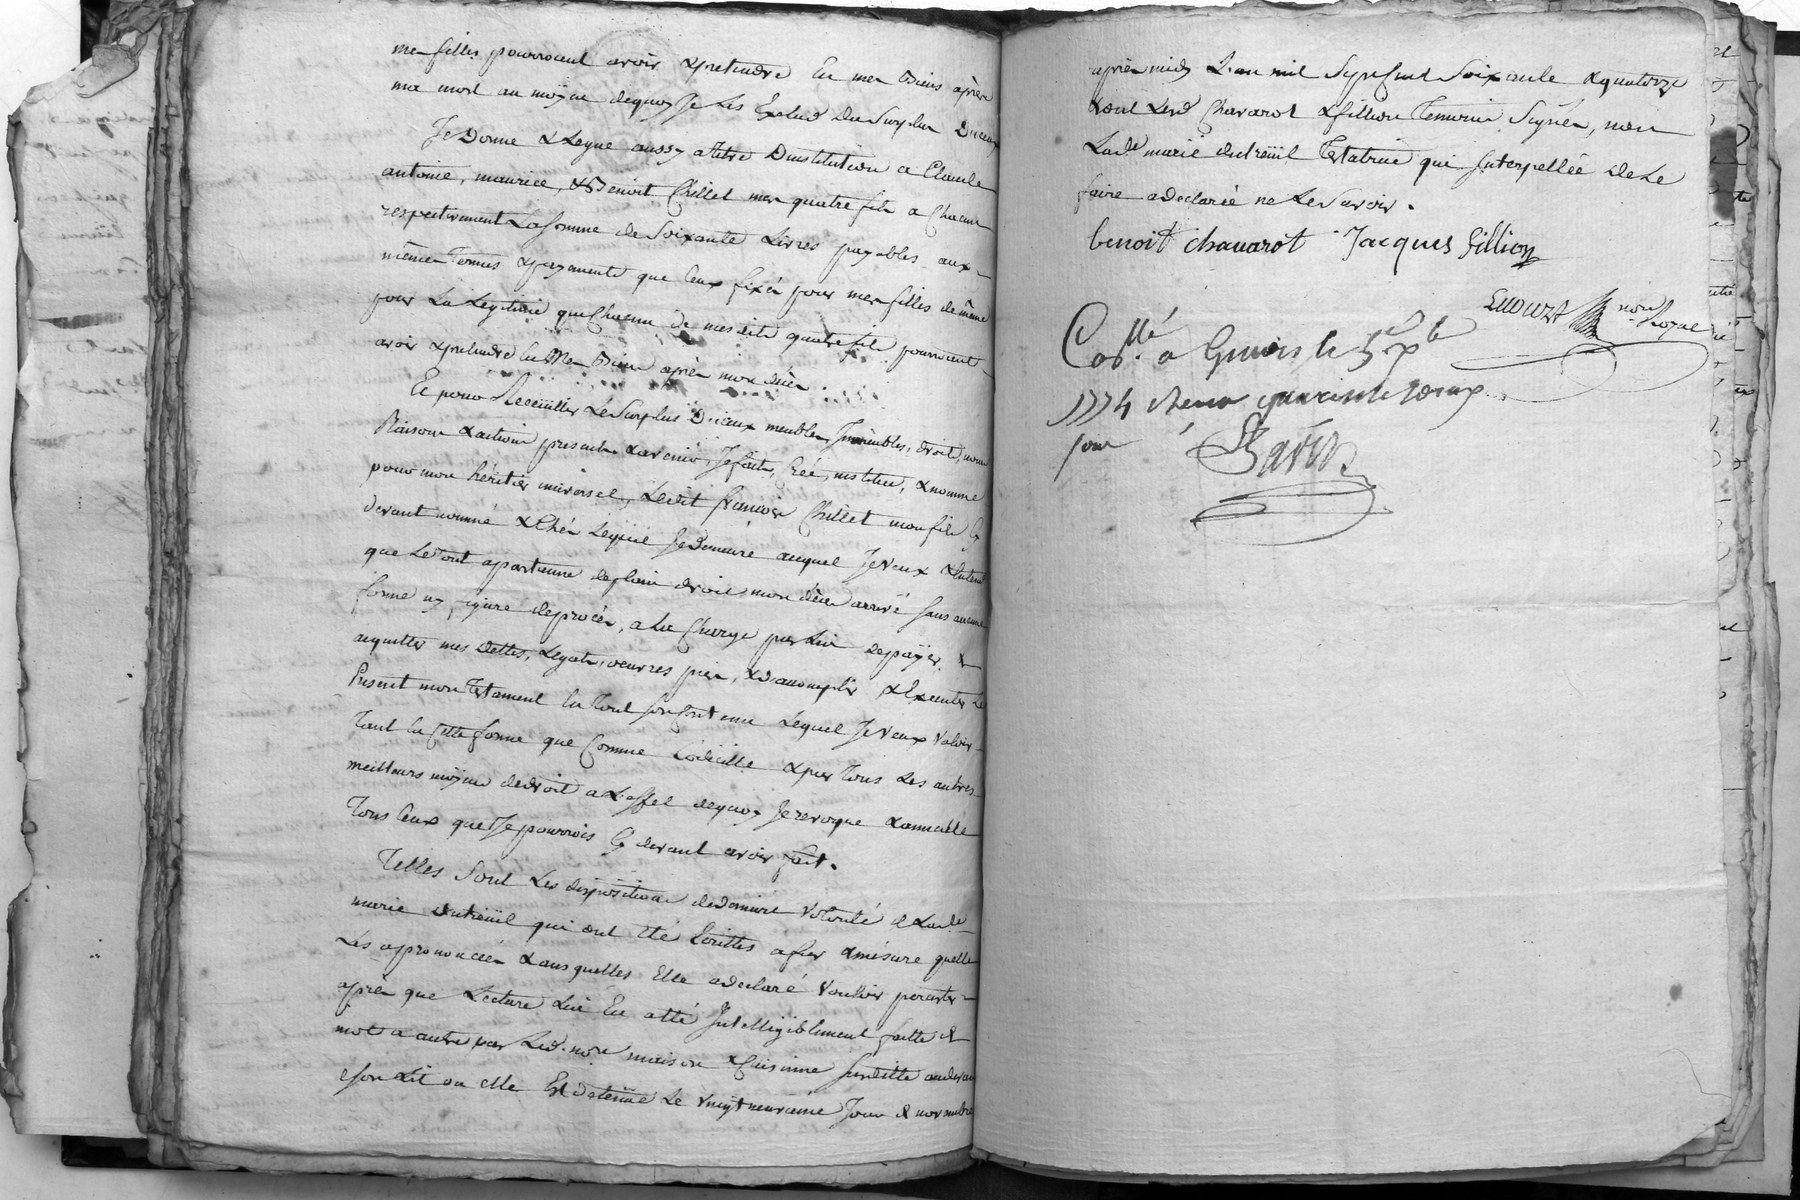 mes filles pourroient avoir & pretendre En mes Biens après
ma mort au moÿen dequoy Je Les Exclud Du Surplus D'iceux
Je Donne & Legue aussy a titre D'institution a Claude
antoine, maurice, & Benoit Chillet mes quatre fils a Chacun
respectivement La somme de Soixante Livres payables aux
mêmes Termes & payements que Ceux fixés pour mes filles de même
pour La Legitime que Chacun de mesdits quatre fils pourroient
avoir & pretendre En Mes Biens après mon décès
Et pour Receüillir Le Surplus D'iceux meubles, Immeubles, droits, noms
Raisons & actions presents & avenir, Je fait, Créé, institue, & nomme
pour mon héritier universel, Ledit françois Chillet mon fils Cy
devant nommé & Chés Lequel Je Demeure auquel Je Veux & Entend
que Le Tout apartienne de plain droit mon décès arrivé sans aucune
forme ny figure de procès, a La Charge par Lui de payer &
acquitter mes dettes, Legats, oeuvres pies, & d'accomplir & Executer Le
Present mon Testament En Tout son Contenu Lequel Je Veux Valoir
Tant En Cette forme que Comme Codicille & par Tous Les autres
meilleurs moÿens de droit a L'effet dequoy Je revoque & annulle
Tous Ceux que Je pourrois Cy devant avoir fait.
Telles Sont Les dispositions de derniere Volonté de Lade
marie dutreüil qui ont été Ecrittes a fur & mésure quelle
Les a prononcées & ausquelles Elle a declaré Vouloir persister
après que Lecture Lui En a été Intelligiblement faitte de
mot a autre par Led. nore maison & Cuisinne Susditte au devant
de son Lit ou elle Est detenüe Le Vingt neuvieme Jour de novembre
après midy L'an mil Sept Cent Soixante & quatorze
& ont Lesd Chavarot & fillion Temoins Signés, non
Lade marie dutreüil Testatrice qui Interpellée de Le
faire a declaré ne Le Savoir.
benoit chavarot Jacques fillion
nore Royal
Conllé a le 5e Xbre
1774 Reçu quarante deux
sous